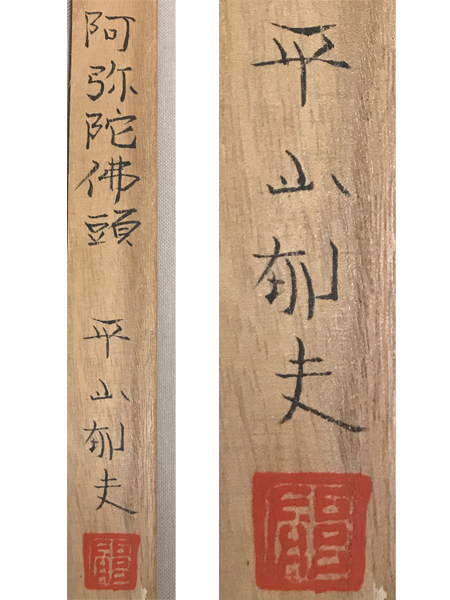 阿弥陀佛頭
平山郁夫
平山郁夫